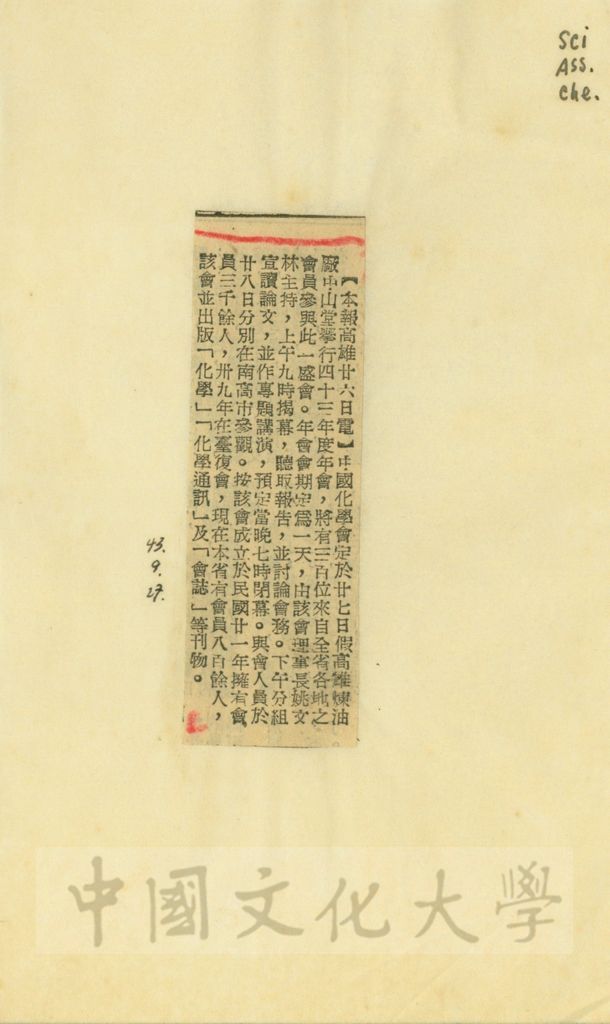 Sci
Ass.
Che.
【本報高雄廿六日電】中國化學會定於廿七日假高雄煉油
廠中山堂舉行四十三年度年會，將有三百位來自全省各地之
會員參與此一盛會。年會會期定為一天，由該會理事長姚文
林主持，上午九時揭幕，聽取報告，並討論會務。下午分組
宣讀論文，並作專題講演，預定當晚七時閉幕。與會人員於
廿八日分別在南高市參觀。按該會成立於民國廿一年擁有會
員三千餘人，卅九年在臺復會，現在本省有會員八百餘人，
該會並出版「化學」「化學通訊」及「會誌」等刊物。
43.
9.
27.
中國文化大學